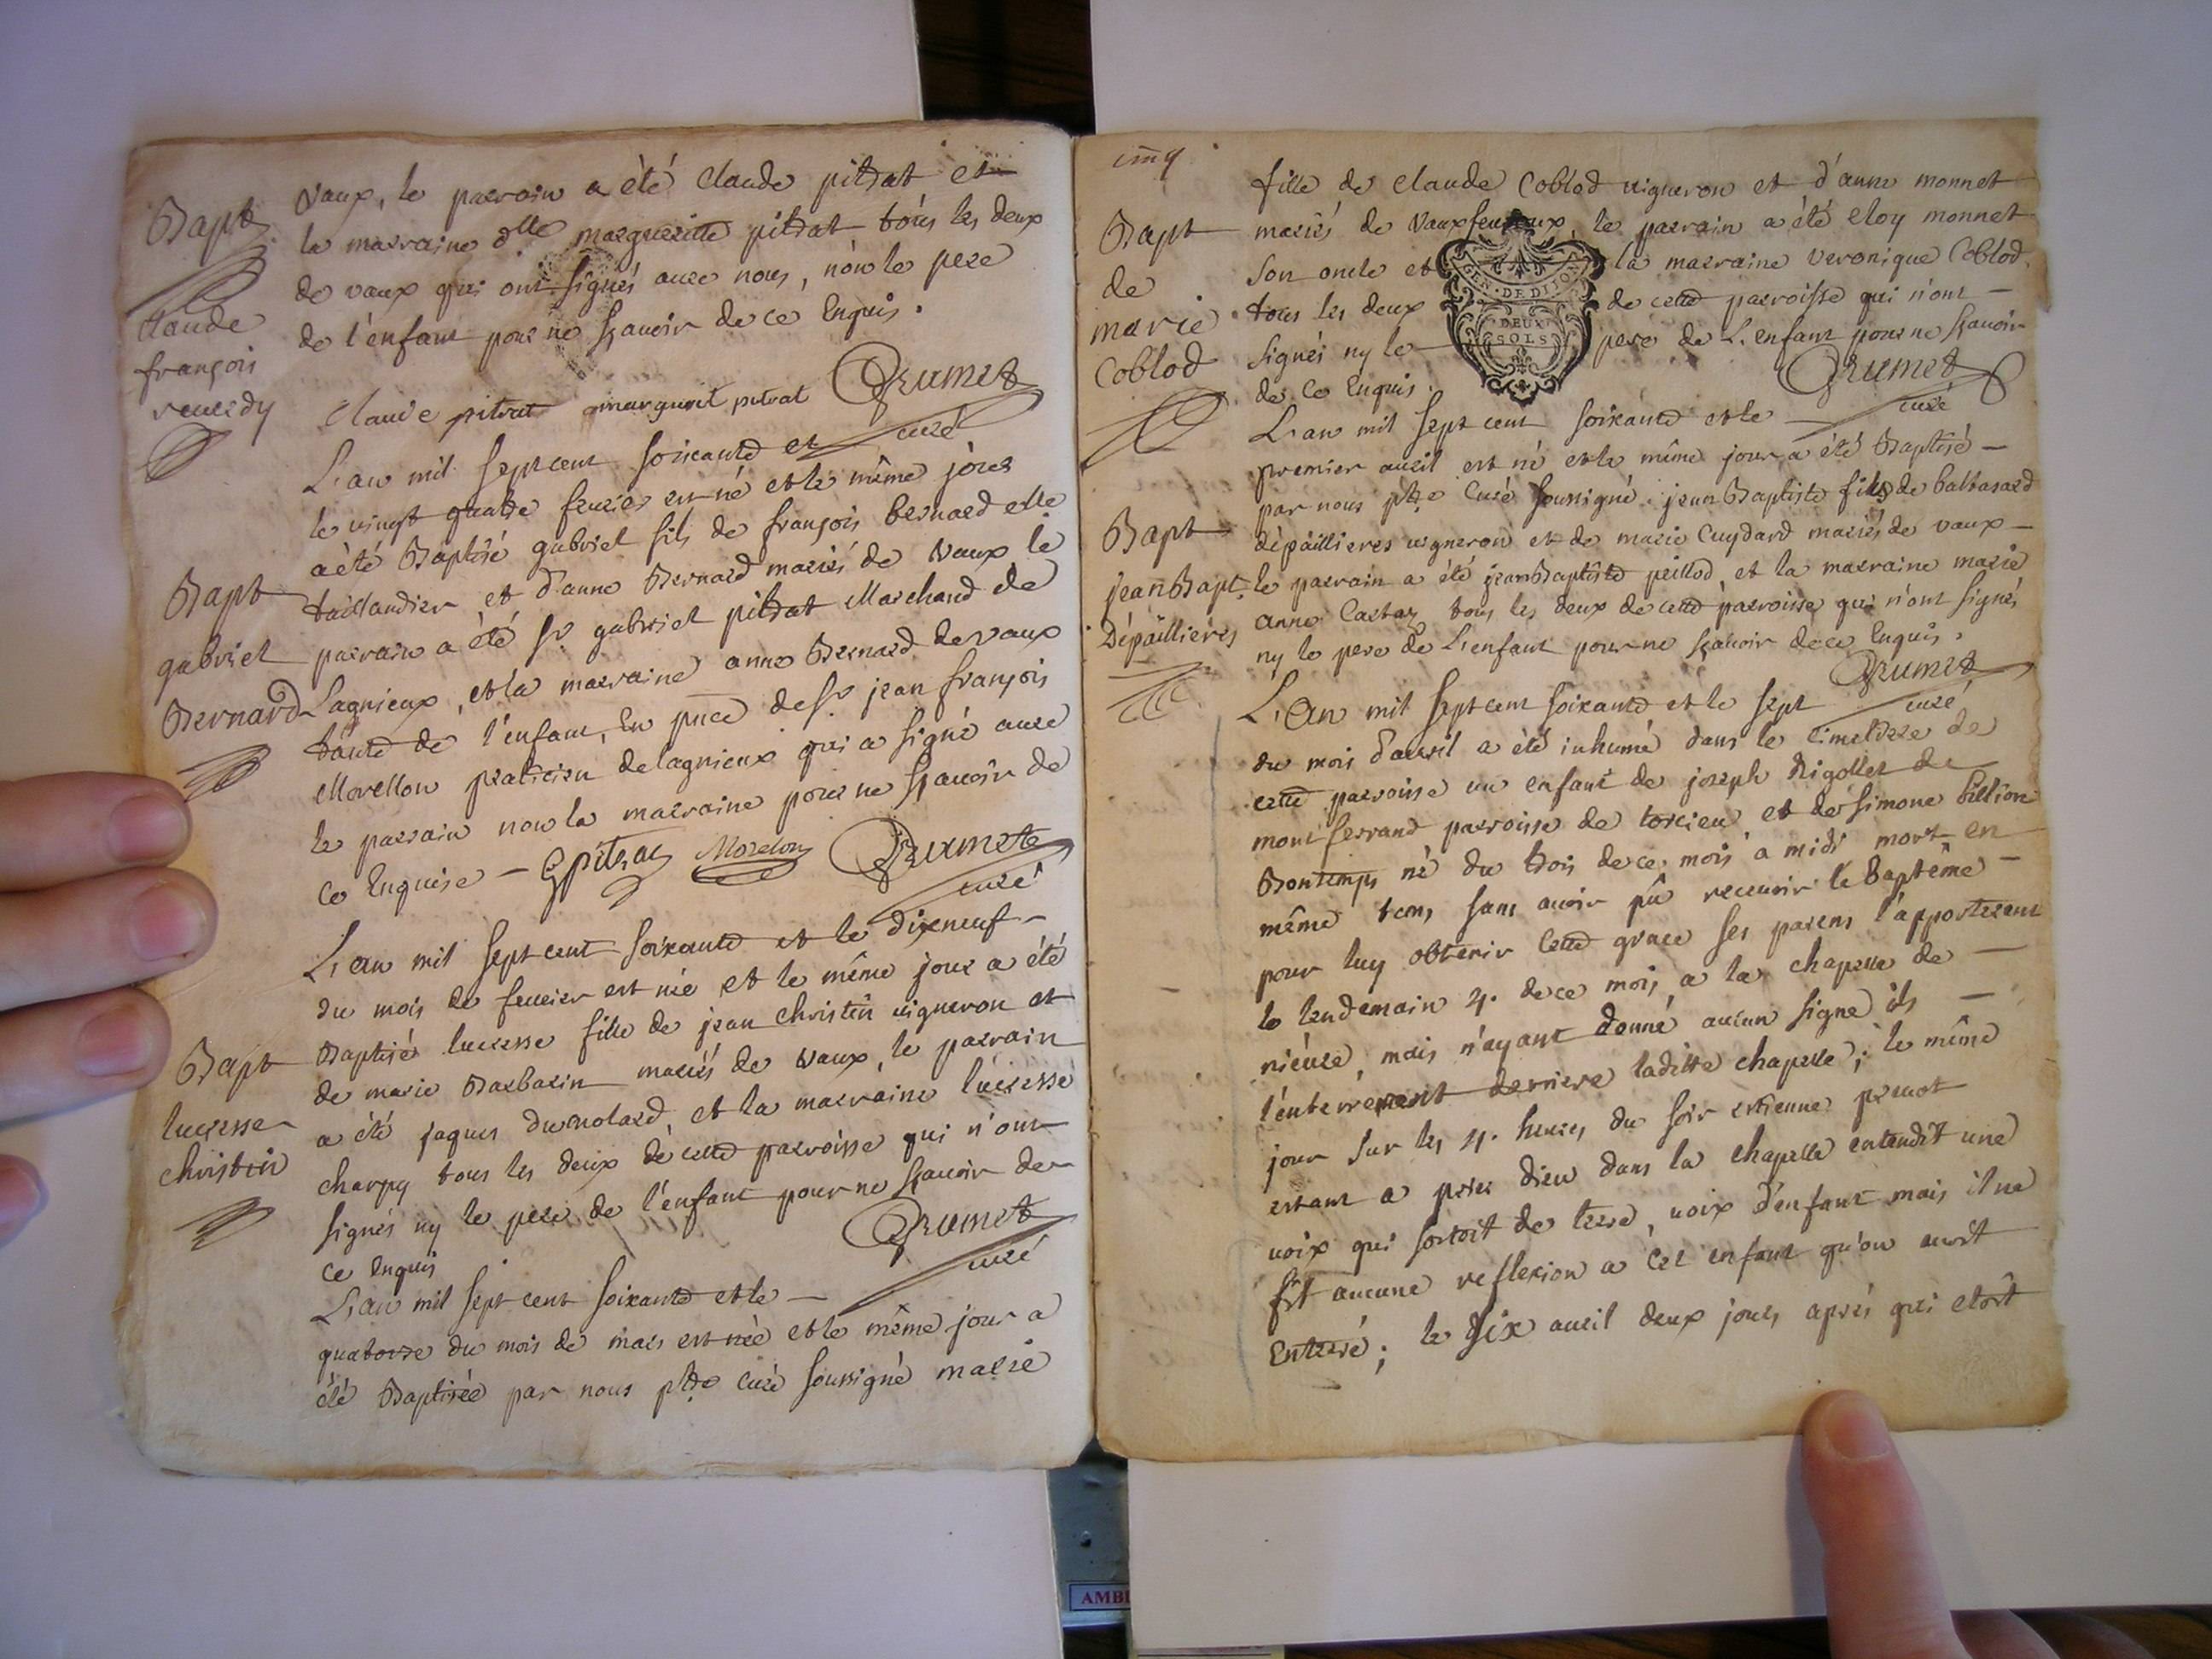 Bapt
Claude
françois
reverdy
Vaux, le parrain a été Claude pitrat et
la marraine dlle margueritte pitrat tous les deux
de vaux qui ont signés avec nous, non le pere
de l'enfant pour ne sçavoir de ce Enquis.
Claude pitrat marguerit pitrat Grumet
curé
L'an mil sept cent soixante et
le vingt quatre fevrier est né et le même jour
a été Baptisé gabriel fils de françois bernard
taillandier et d'anne Bernard mariés de Vaux le
Bapt
gabriel
Bernard
parrain a été Sr gabriel pitrat Marchand de
Lagnieux, et la marraine anne Bernard de vaux
tante de l'enfant, En pnce de Sr jean françois
Morellon praticien de lagnieux qui a signé avec
le parrain non la marraine pour ne sçavoir de
ce Enquise - Gpitrat Morelon Grumet
curé
L'an mil sept cent soixante et le dixneuf
du mois de fevrier est née et le même jour a été
Bapt
lucresse
christin
Baptisée lucresse fille de jean christin vigneron et
de marie Barbarin mariés de vaux, le parrain
a été jaques dumolard, et la marraine lucresse
charpy tous les deux de cette parroisse qui n'ont
signés ny le pere de l'enfant pour ne sçavoir de
ce Enquis Grumet
curé
L'an mil sept cent soixante et le
quatorze du mois de mars est née et le même jour a
été Baptisée par nous ptre curé soussigné marie
cinq
Bapt
de
marie
Coblod
fille de Claude Coblod vigneron et d'anne monnet
mariés de Vaux le parrain a été eloy monnet
son oncle et la marraine Veronique Coblod
tous les deux de cette parroisse qui n'ont
signés ny le pere de L'enfant pour ne sçavoir
de ce Enquis. Grumet
curé
GEN · DE DIJON
DEUX
SOLS
L'an mil sept cent soixante et le
premier avril est né et le même jour a été Baptisé
par nous ptre Curé soussigné jean Baptiste fils de baltasard
Bapt
jean Bapt.
Dépaillieres
dépaillieres vigneron et de marie Cuydard mariés de vaux
le parrain a été jean Baptiste peillod, et la marraine marie
anne tous les deux de cette parroisse qui n'ont signés
ny le pere de L'enfant pour ne sçavoir de ce Enquis.
Grumet
curé
L'An mil sept cent soixante et le sept
du mois d'avril a été inhumé dans le Cimetiere de
cette parroisse un enfant de joseph Rigollet de
mont ferrand parroisse de torcieu et de simone billion
Bontemps né du trois de ce mois a midi mort en
même tems sans avoir pû recevoir le baptême
pour luy obtenir cette grace ses parens l'apporterent
le lendemain 4. de ce mois a la chapelle de
nieure, mais n'ayant donné aucun signe ils
l'enterrerent derriere laditte chapelle; le même
jour sur les 4. heures du soir etienne prevot
estant a prier dieu dans la chapelle entendit une
voix qui sortoit de terre, voix d'enfant mais il ne
fit aucune reflexion a cet enfant qu'on avoit
Enterré; le six avril deux jours aprés qui etoit
AMB